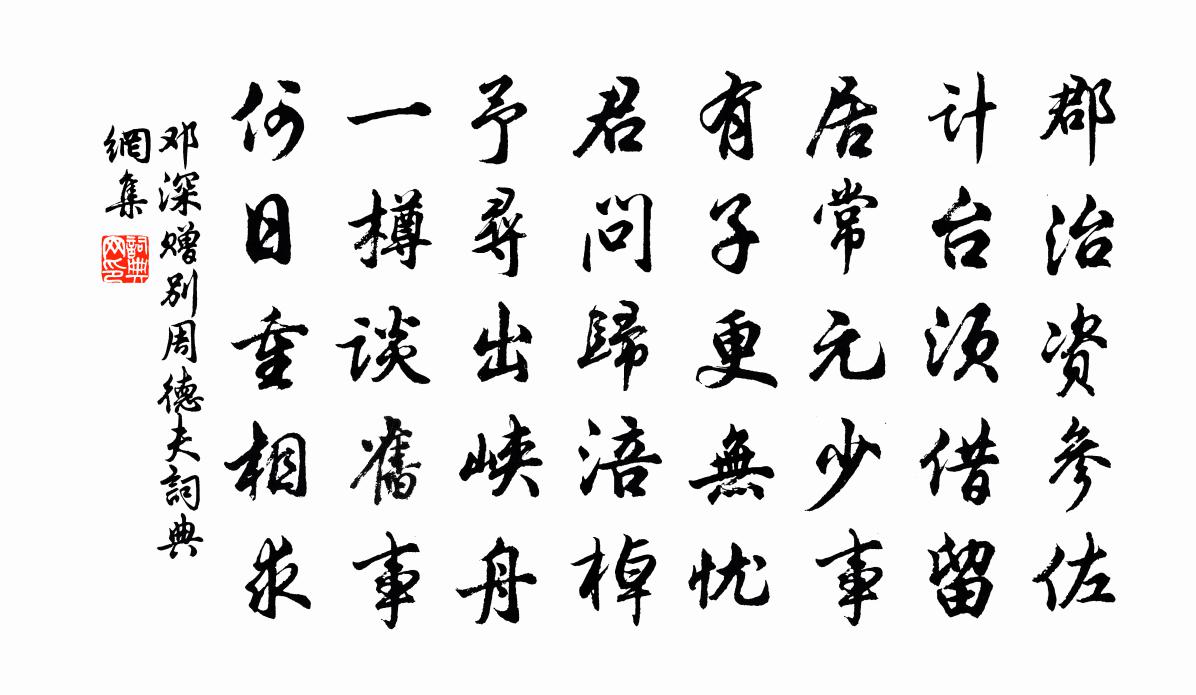 郡治资参佐
计台须借留
居常元少事
有子更無忧
君问歸涪棹
予尋出峡舟
一樽谈舊事
何日重相求
邓深赠别周德夫詞典
網集
詞典网印